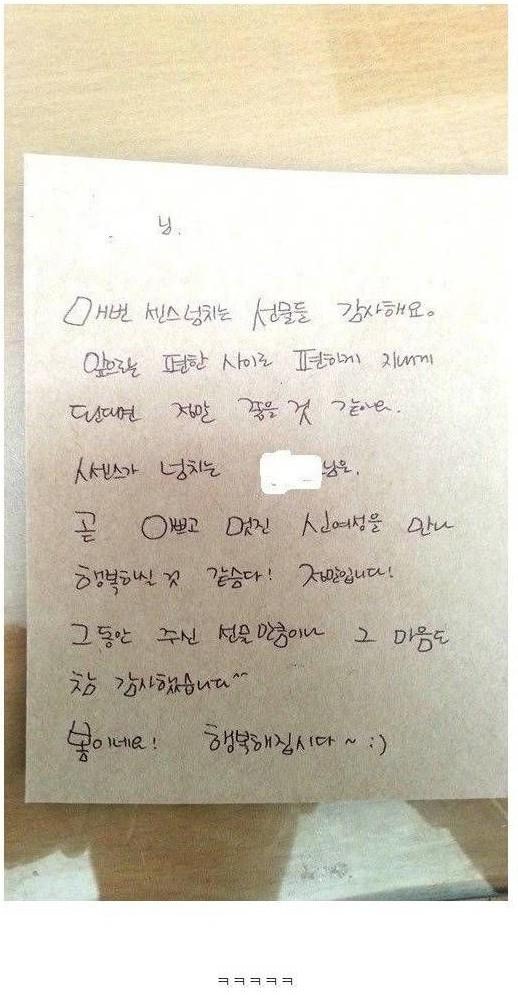 님.
매번 센스 넘치는 선물들 감사해요.
앞으로는 편한 사이로 편하게 지내게
된다면 정말 좋을 것 같아요.
센스가 넘치는 님은,
곧 예쁘고 멋진 신여성을 만나
행복하실 것 같습다! 정말입니다!
그동안 주신 선물만큼이나 그 마음도
참 감사했습니다^^
봄이네요! 행복해집시다~ :)
ㅋㅋㅋㅋㅋ